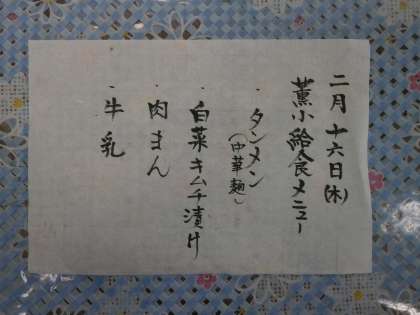 二月十六日(木)
薫小給食メニュー
・タンメン
(中華麺)
・白菜キムチ漬け
・肉まん
・牛乳